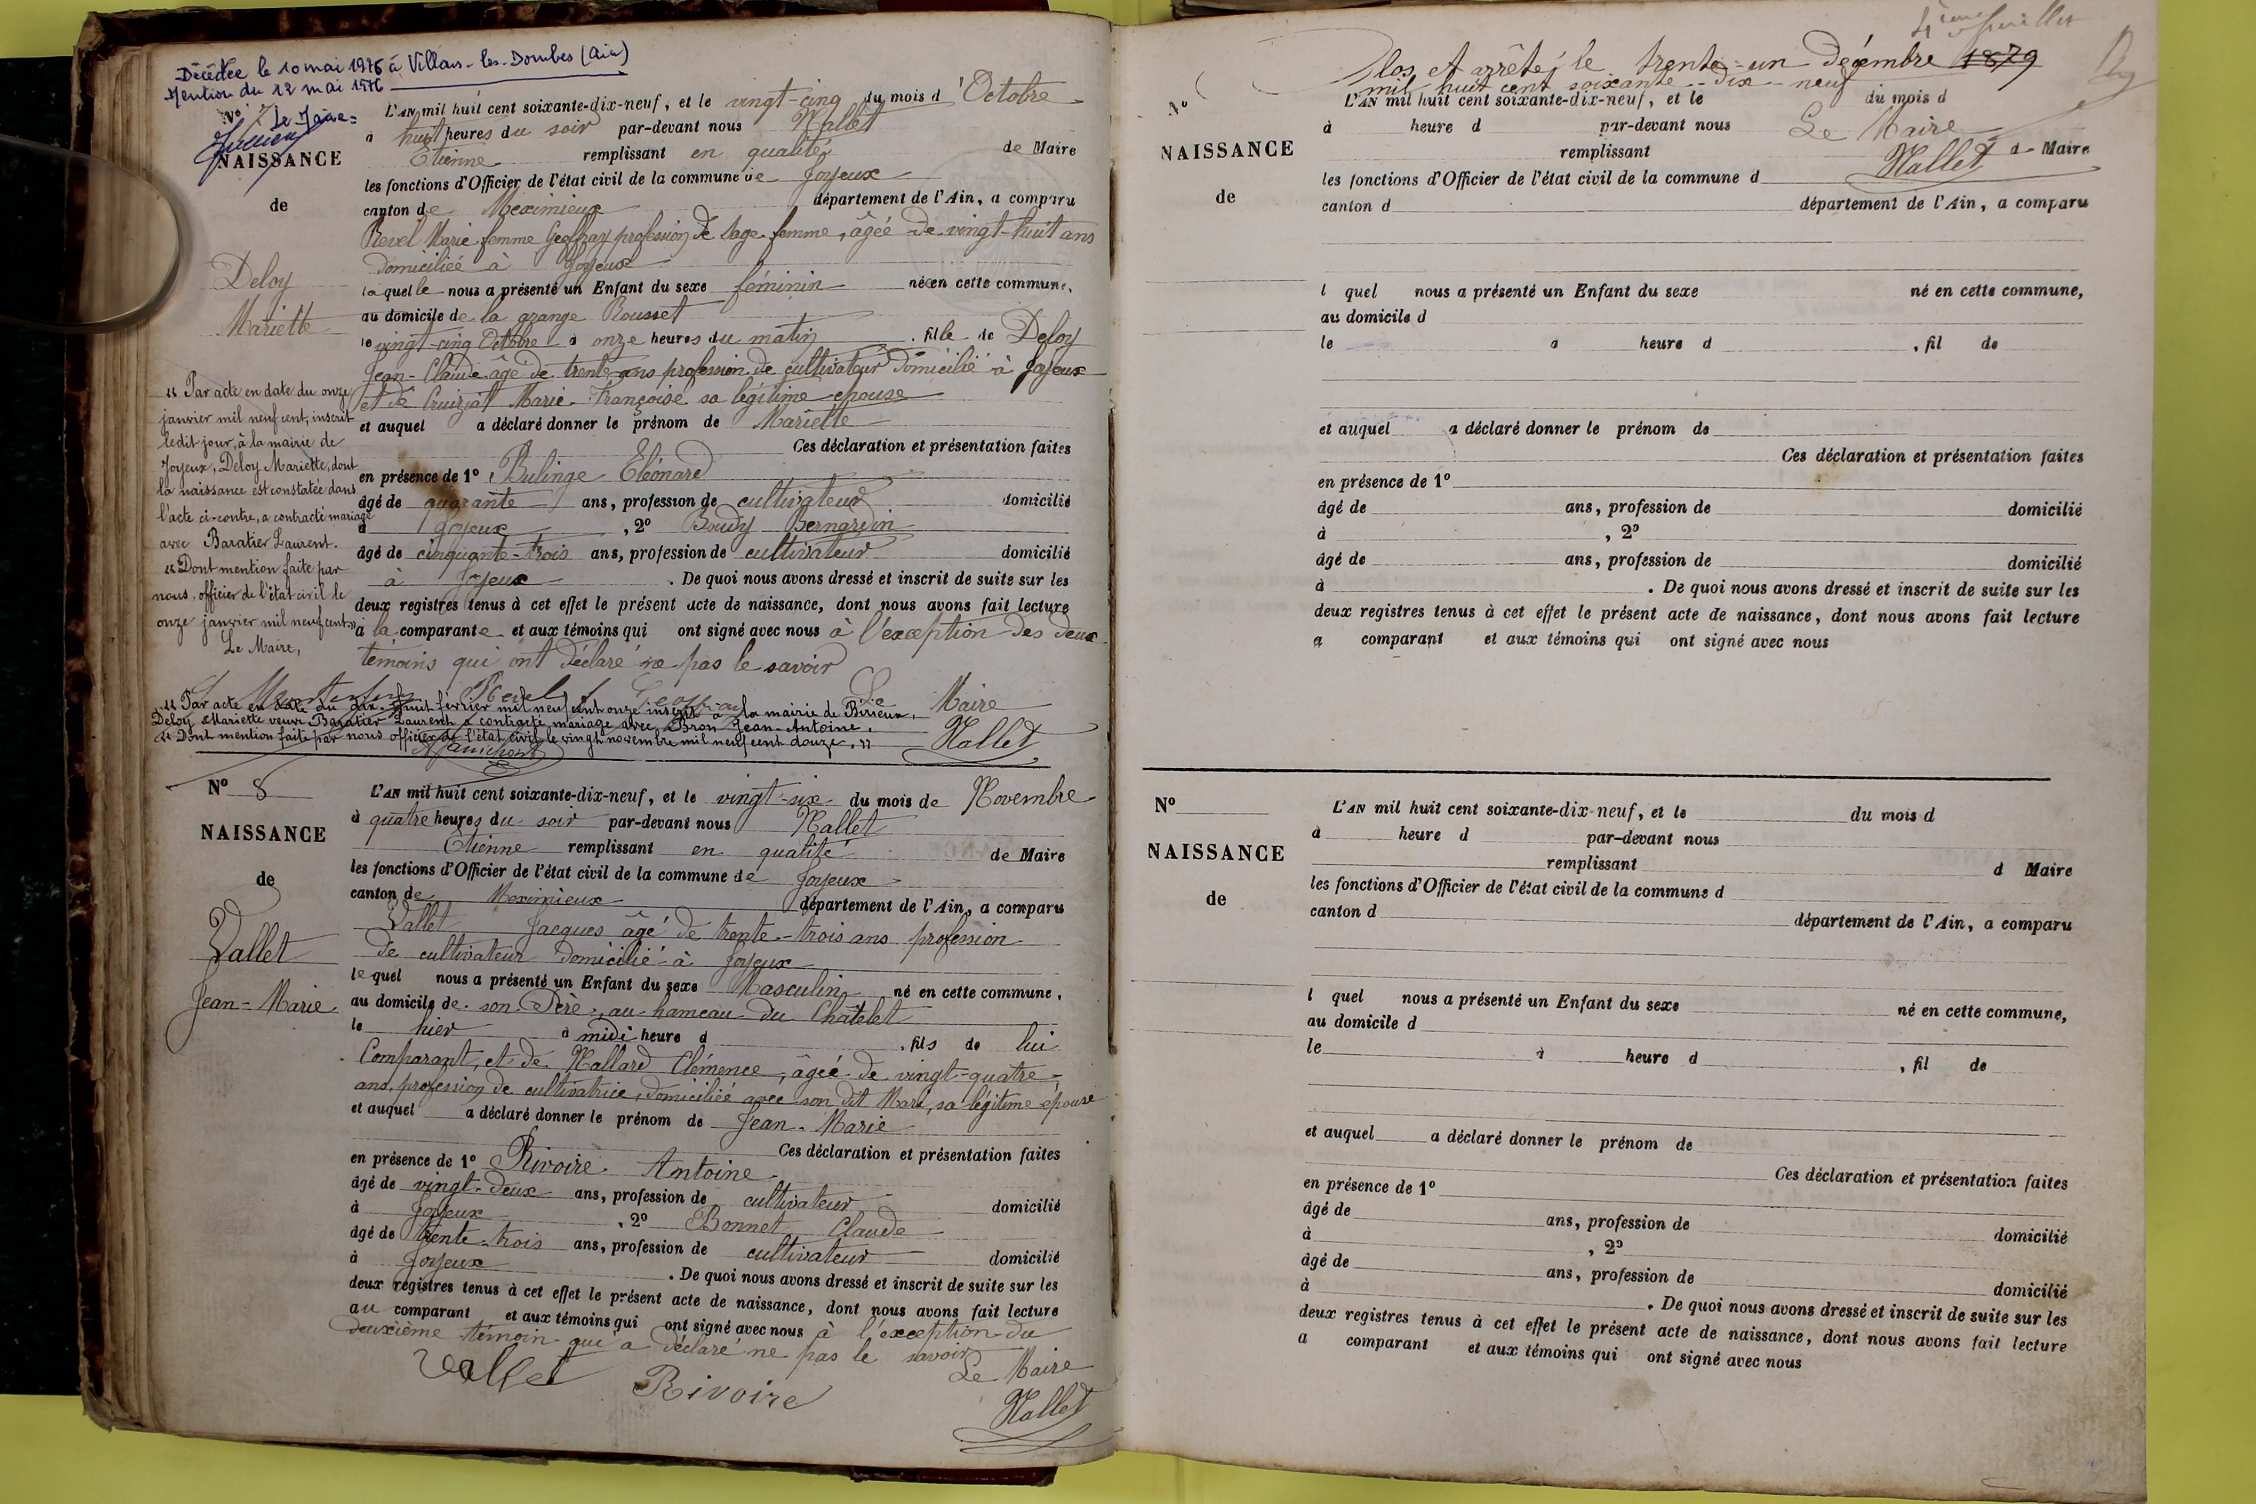 Décédée le 10 mai 1976 à Villars-les-Dombes (Ain)
Mention du 12 mai 1976
Le Maire
N° 7
NAISSANCE
de
Deloy
Mariette
L'AN mil huit cent soixante-dix-neuf, et le vingt-cinq du mois d'Octobre
à huit heures du soir par-devant nous Nallet
Etienne remplissant en qualité de Maire
les fonctions d'Officier de l'état civil de la commune de Joyeux
canton de Meximieux département de l'Ain, a comparu
Revel Marie femme Geoffray profession de Sage-femme, âgée de vingt-huit ans
domiciliée à Joyeux
laquelle nous a présenté un Enfant du sexe féminin née en cette commune,
au domicile de la grange Rousset
le vingt-cinq Octobre à onze heures du matin, fille de Deloy
Jean-Claude âgé de trente ans profession de cultivateur domicilié à Joyeux
et de Cruizat Marie-Françoise sa légitime épouse
et auquel a déclaré donner le prénom de Mariette
Ces déclaration et présentation faites
en présence de 1° Bulinge Eléonard
âgé de quarante ans, profession de cultivateur domicilié
à Joyeux, 2° Boudy Bernardin
âgé de cinquante-trois ans, profession de cultivateur domicilié
à Joyeux. De quoi nous avons dressé et inscrit de suite sur les
deux registres tenus à cet effet le présent acte de naissance, dont nous avons fait lecture
à la comparante et aux témoins qui ont signé avec nous à l'exception des deux
témoins qui ont déclaré ne pas le savoir
Revel f Geoffray Le Maire
Nallet
" Par acte en date du onze
janvier mil neuf cent, inscrit
ledit jour, à la mairie de
Joyeux, Deloy Mariette, dont
la naissance est constatée dans
l'acte ci-contre, a contracté mariage
avec Baratier Laurent.
" Dont mention faite par
nous, officier de l'état civil le
onze janvier mil neuf cent. "
Le Maire,
" Par acte en date du dix-huit février mil neuf cent onze inscrit à la mairie de Birieux,
Deloy Mariette veuve Baratier Laurent a contracté mariage avec Bron Jean-Antoine.
" Dont mention faite par nous officier de l'état civil le vingt novembre mil neuf cent douze. "
N° 8
NAISSANCE
de
Vallet
Jean-Marie
L'AN mil huit cent soixante-dix-neuf, et le vingt-six du mois de Novembre
à quatre heures du soir par-devant nous Nallet
Etienne remplissant en qualité de Maire
les fonctions d'Officier de l'état civil de la commune de Joyeux
canton de Meximieux département de l'Ain, a comparu
Vallet Jacques âgé de trente-trois ans profession
de cultivateur domicilié à Joyeux
lequel nous a présenté un Enfant du sexe Masculin né en cette commune,
au domicile de son Père, au hameau du Châtelet
le hier à midi heure d , fils de lui
Comparant, et de Mallard Clémence, âgée de vingt-quatre
ans, profession de cultivatrice, domiciliée avec son dit Mari, sa légitime épouse
et auquel a déclaré donner le prénom de Jean-Marie
Ces déclaration et présentation faites
en présence de 1° Rivoire Antoine
âgé de vingt-deux ans, profession de cultivateur domicilié
à Joyeux, 2° Bonnet Claude
âgé de trente-trois ans, profession de cultivateur domicilié
à Joyeux. De quoi nous avons dressé et inscrit de suite sur les
deux registres tenus à cet effet le présent acte de naissance, dont nous avons fait lecture
au comparant et aux témoins qui ont signé avec nous à l'exception du
deuxième témoin qui a déclaré ne pas le savoir
Vallet Rivoire Le Maire
Nallet
4ième feuillet
Clos et arrêté le trente-un Décembre 1879
mil huit cent soixante-dix-neuf
Le Maire
Nallet
N°
NAISSANCE
de
L'AN mil huit cent soixante-dix-neuf, et le du mois d
à heure d par-devant nous
remplissant d Maire
les fonctions d'Officier de l'état civil de la commune d
canton d département de l'Ain, a comparu
l quel nous a présenté un Enfant du sexe né en cette commune,
au domicile d
le à heure d , fil de
et auquel a déclaré donner le prénom de
Ces déclaration et présentation faites
en présence de 1°
âgé de ans, profession de domicilié
à , 2°
âgé de ans, profession de domicilié
à . De quoi nous avons dressé et inscrit de suite sur les
deux registres tenus à cet effet le présent acte de naissance, dont nous avons fait lecture
a comparant et aux témoins qui ont signé avec nous
N°
NAISSANCE
de
L'AN mil huit cent soixante-dix-neuf, et le du mois d
à heure d par-devant nous
remplissant d Maire
les fonctions d'Officier de l'état civil de la commune d
canton d département de l'Ain, a comparu
l quel nous a présenté un Enfant du sexe né en cette commune,
au domicile d
le à heure d , fil de
et auquel a déclaré donner le prénom de
Ces déclaration et présentation faites
en présence de 1°
âgé de ans, profession de domicilié
à , 2°
âgé de ans, profession de domicilié
à . De quoi nous avons dressé et inscrit de suite sur les
deux registres tenus à cet effet le présent acte de naissance, dont nous avons fait lecture
a comparant et aux témoins qui ont signé avec nous